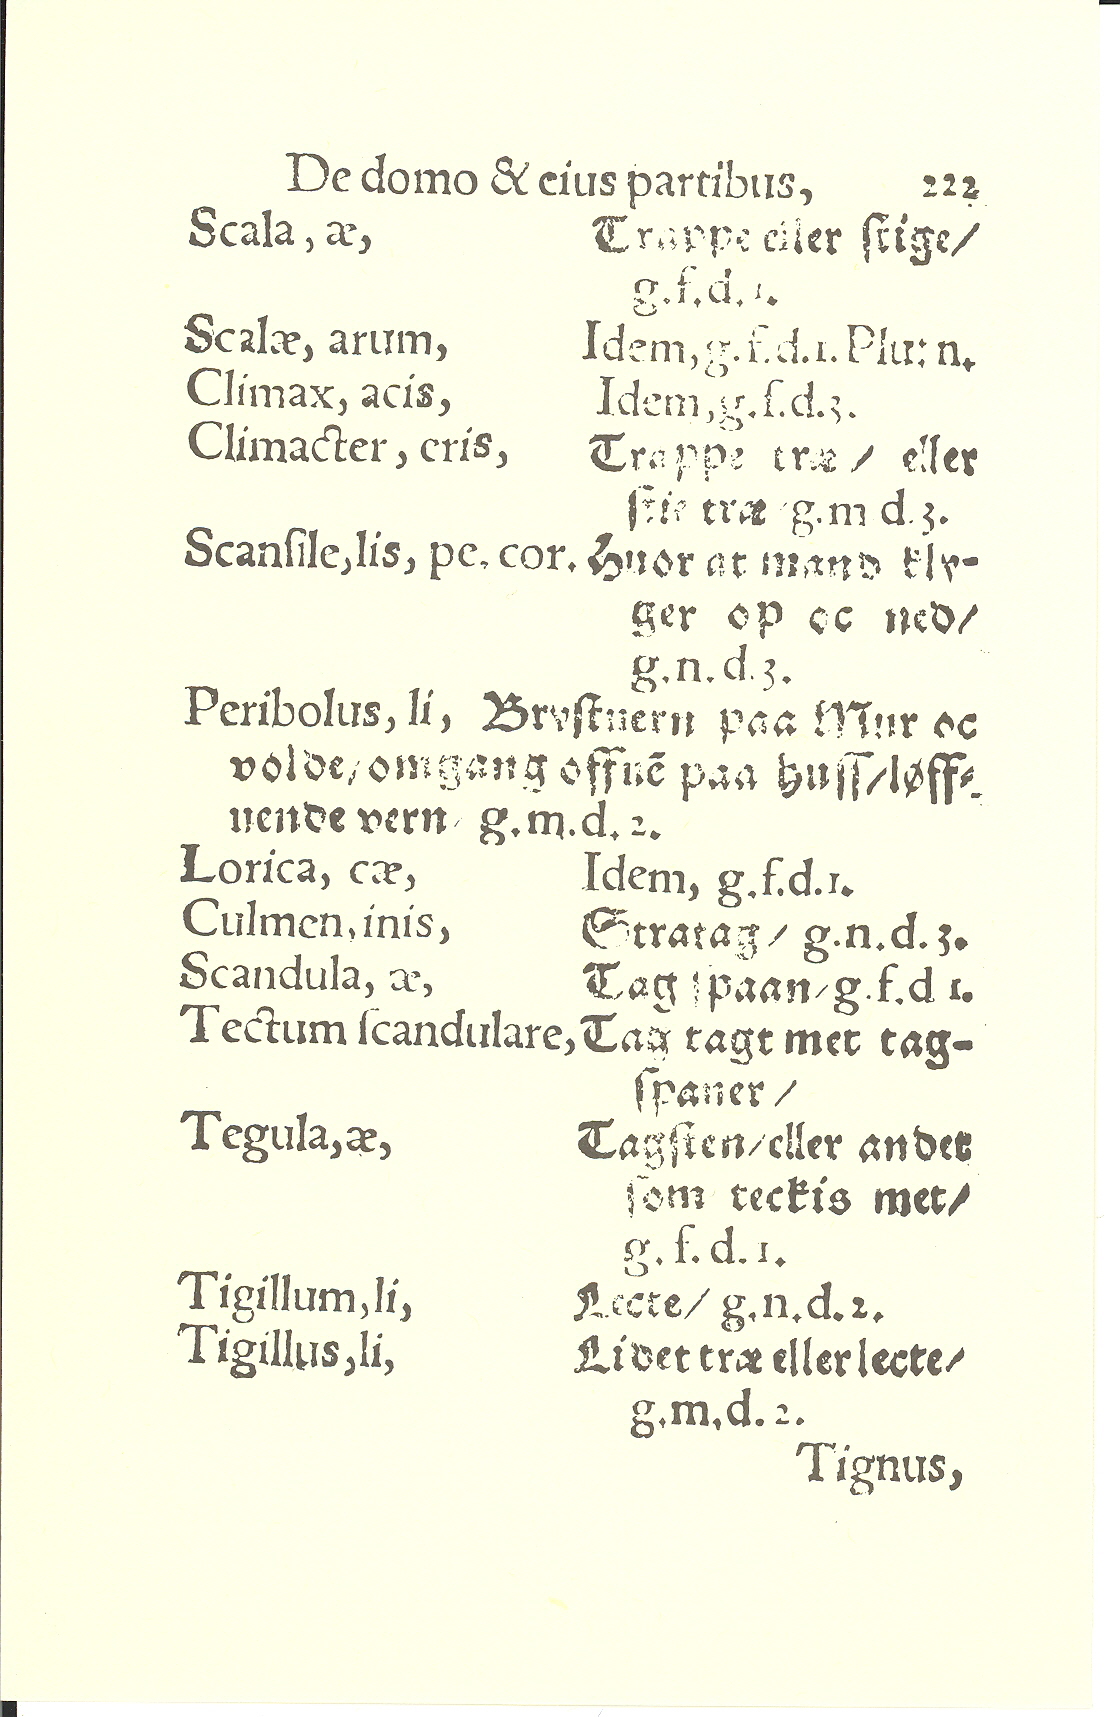 De domo & eius partibus, 222
Scala, æ, Trappe eller stige/
g.f.d.1.
Scalæ, arum, Idem, g.f.d.1. Plu: n.
Climax, acis, Idem, g.f.d.3.
Climacter, eris, Trappe træ / eller
stie træ / g.m d.3.
Scanſile, lis, pe. cor. Huor at mand kly-
ger op oc ned/
g.n.d.3.
Peribolus, li, Brystuern paa Mur oc
volde/ omgang offuē paa huſſ/ løff-
uende vern/ g.m.d.2.
Lorica, cæ, Idem, g.f.d.1.
Culmen, inis, Stratag/ g.n.d.3.
Scandula, æ, Tag spaan/ g.f.d 1.
Tectum ſcandulare, Tag tagt met tag-
ſpaner/
Tegula, æ, Tagſten/ eller andet
ſom teckis met/
g.f.d.1.
Tigillum, li, Lecte/ g.n.d.2.
Tigillus, li, Lidet træ eller lecte/
g.m.d.2.
Tignus,